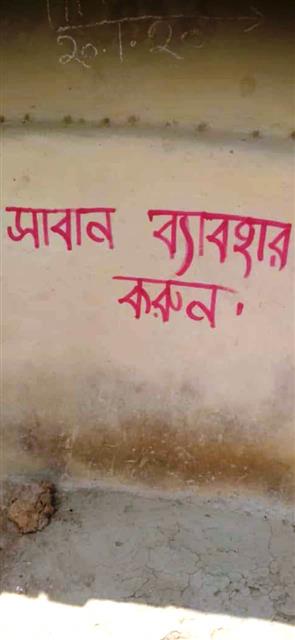 ২০.1.২০
সাবান ব্যাবহার
করুন.